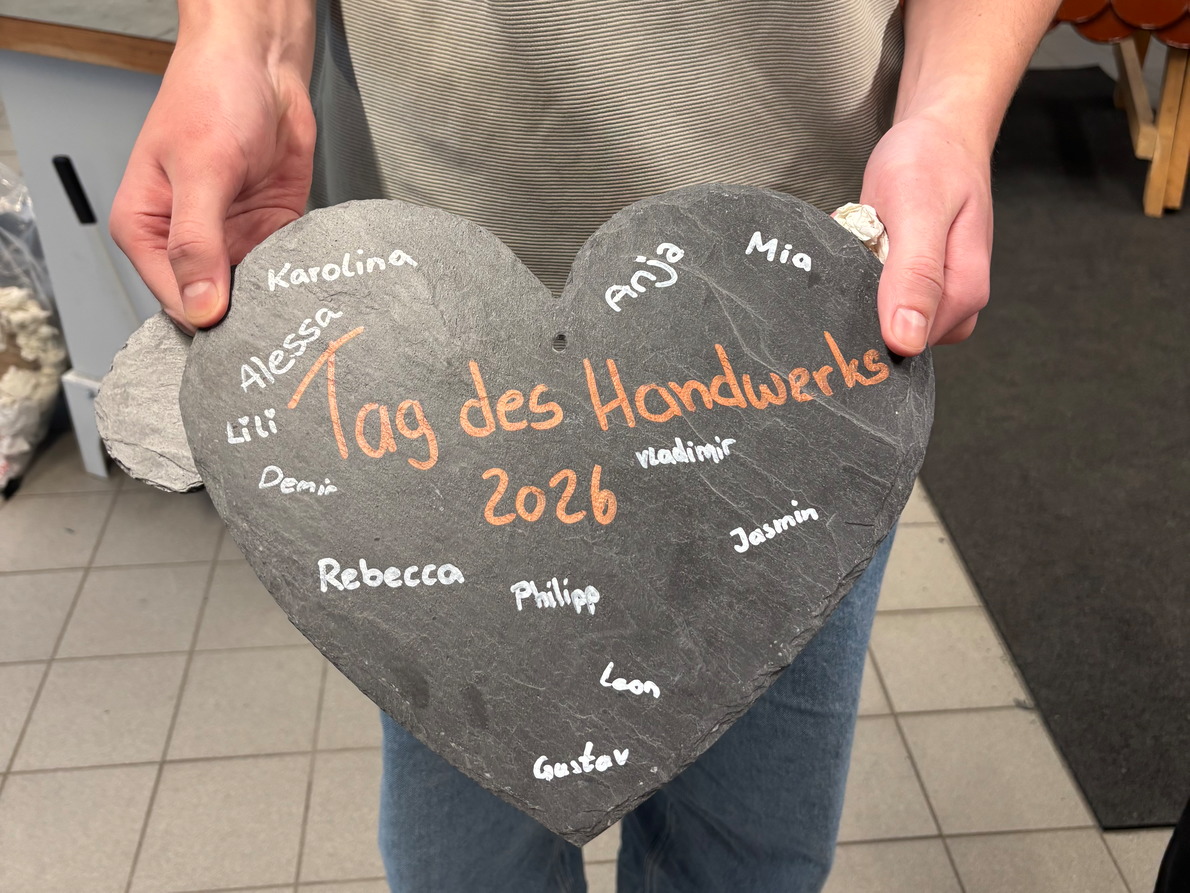 Karolina
Anja
Mia
Alessa
Tag des Handwerks
Lili
vladimir
Demir
2026
Jasmin
Rebecca
Philipp
Leon
Gustav